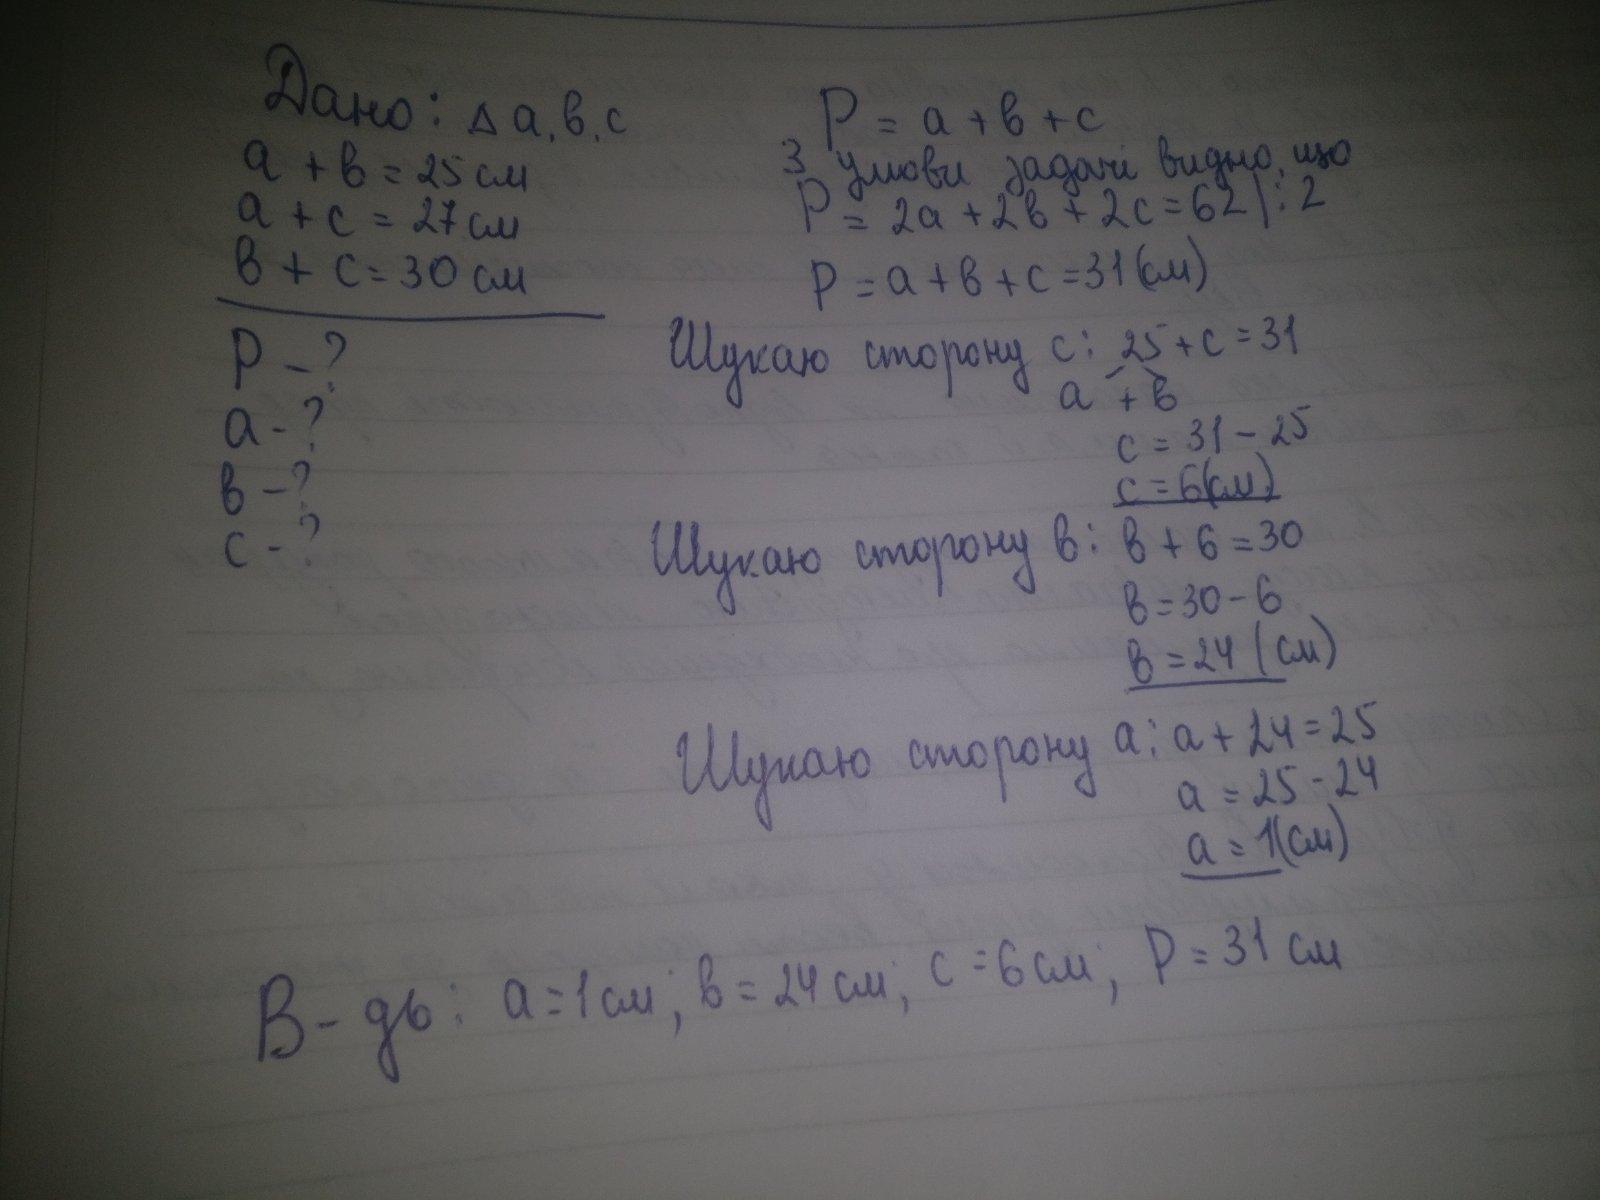 Дано: Δ а, в, с
а + в = 25 см
а + с = 27 см
в + с = 30 см
Р - ?
а - ?
в - ?
с - ?
Р = а + в + с
З умови задачі видно, що
Р = 2а + 2в + 2с = 62 | : 2
Р = а + в + с = 31 (см)
Шукаю сторону с: 25 + с = 31
а + в
с = 31 - 25
с = 6 (см)
Шукаю сторону в: в + 6 = 30
в = 30 - 6
в = 24 (см)
Шукаю сторону а: а + 24 = 25
а = 25 - 24
а = 1 (см)
В-дь: а = 1 см; в = 24 см; с = 6 см; Р = 31 см